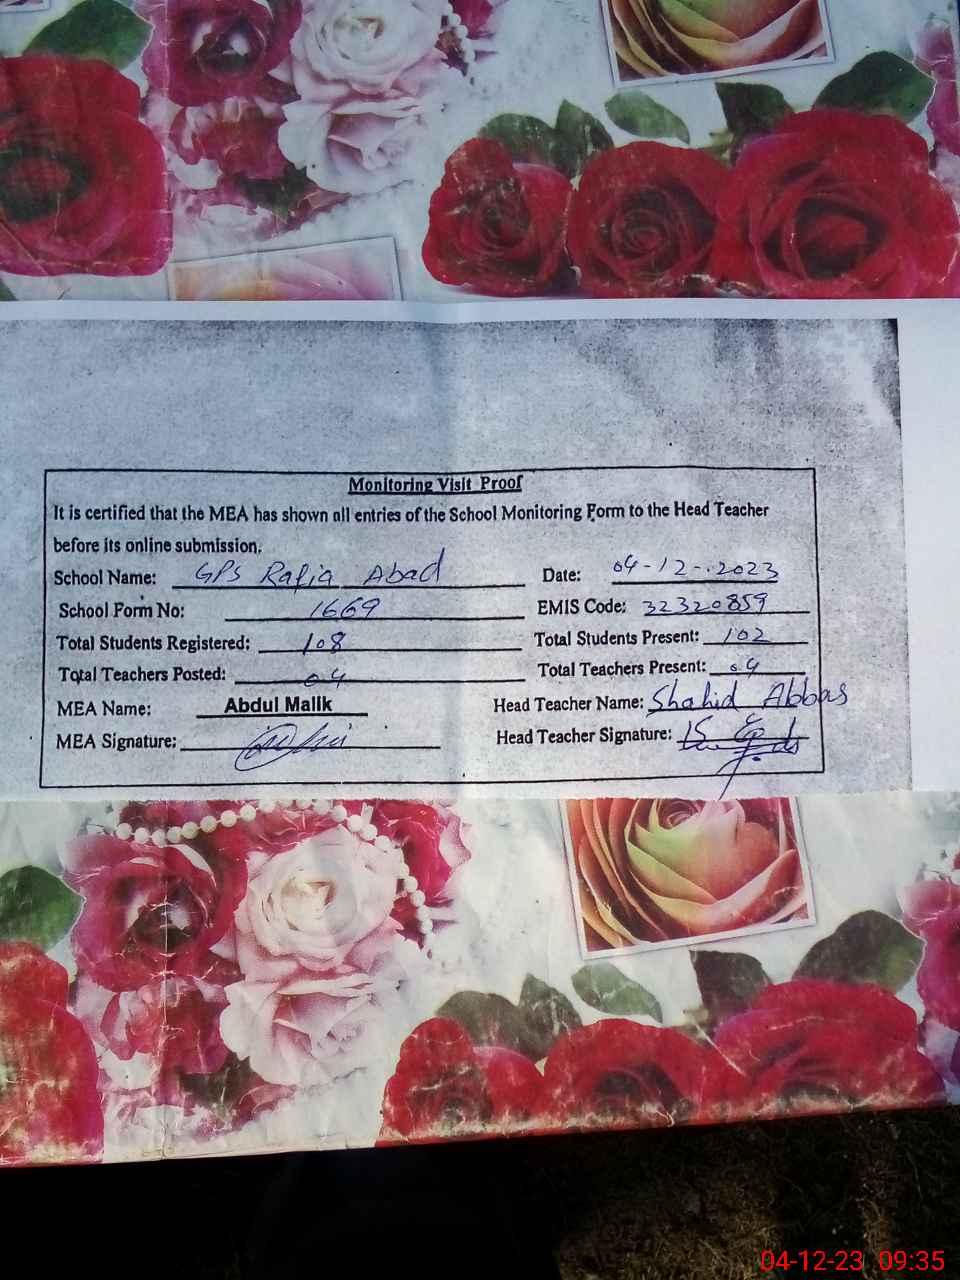 Monitoring Visit Proof
It is certified that the MEA has shown all entries of the School Monitoring Form to the Head Teacher
before its online submission.
School Name: GPS Rafia Abad Date: 04-12-2023
School Form No: 1669 EMIS Code: 32320859
Total Students Registered: 108 Total Students Present: 102
Total Teachers Posted: 04 Total Teachers Present: 04
MEA Name: Abdul Malik Head Teacher Name: Shahid Abbas
MEA Signature: Head Teacher Signature:
04-12-23 09:35